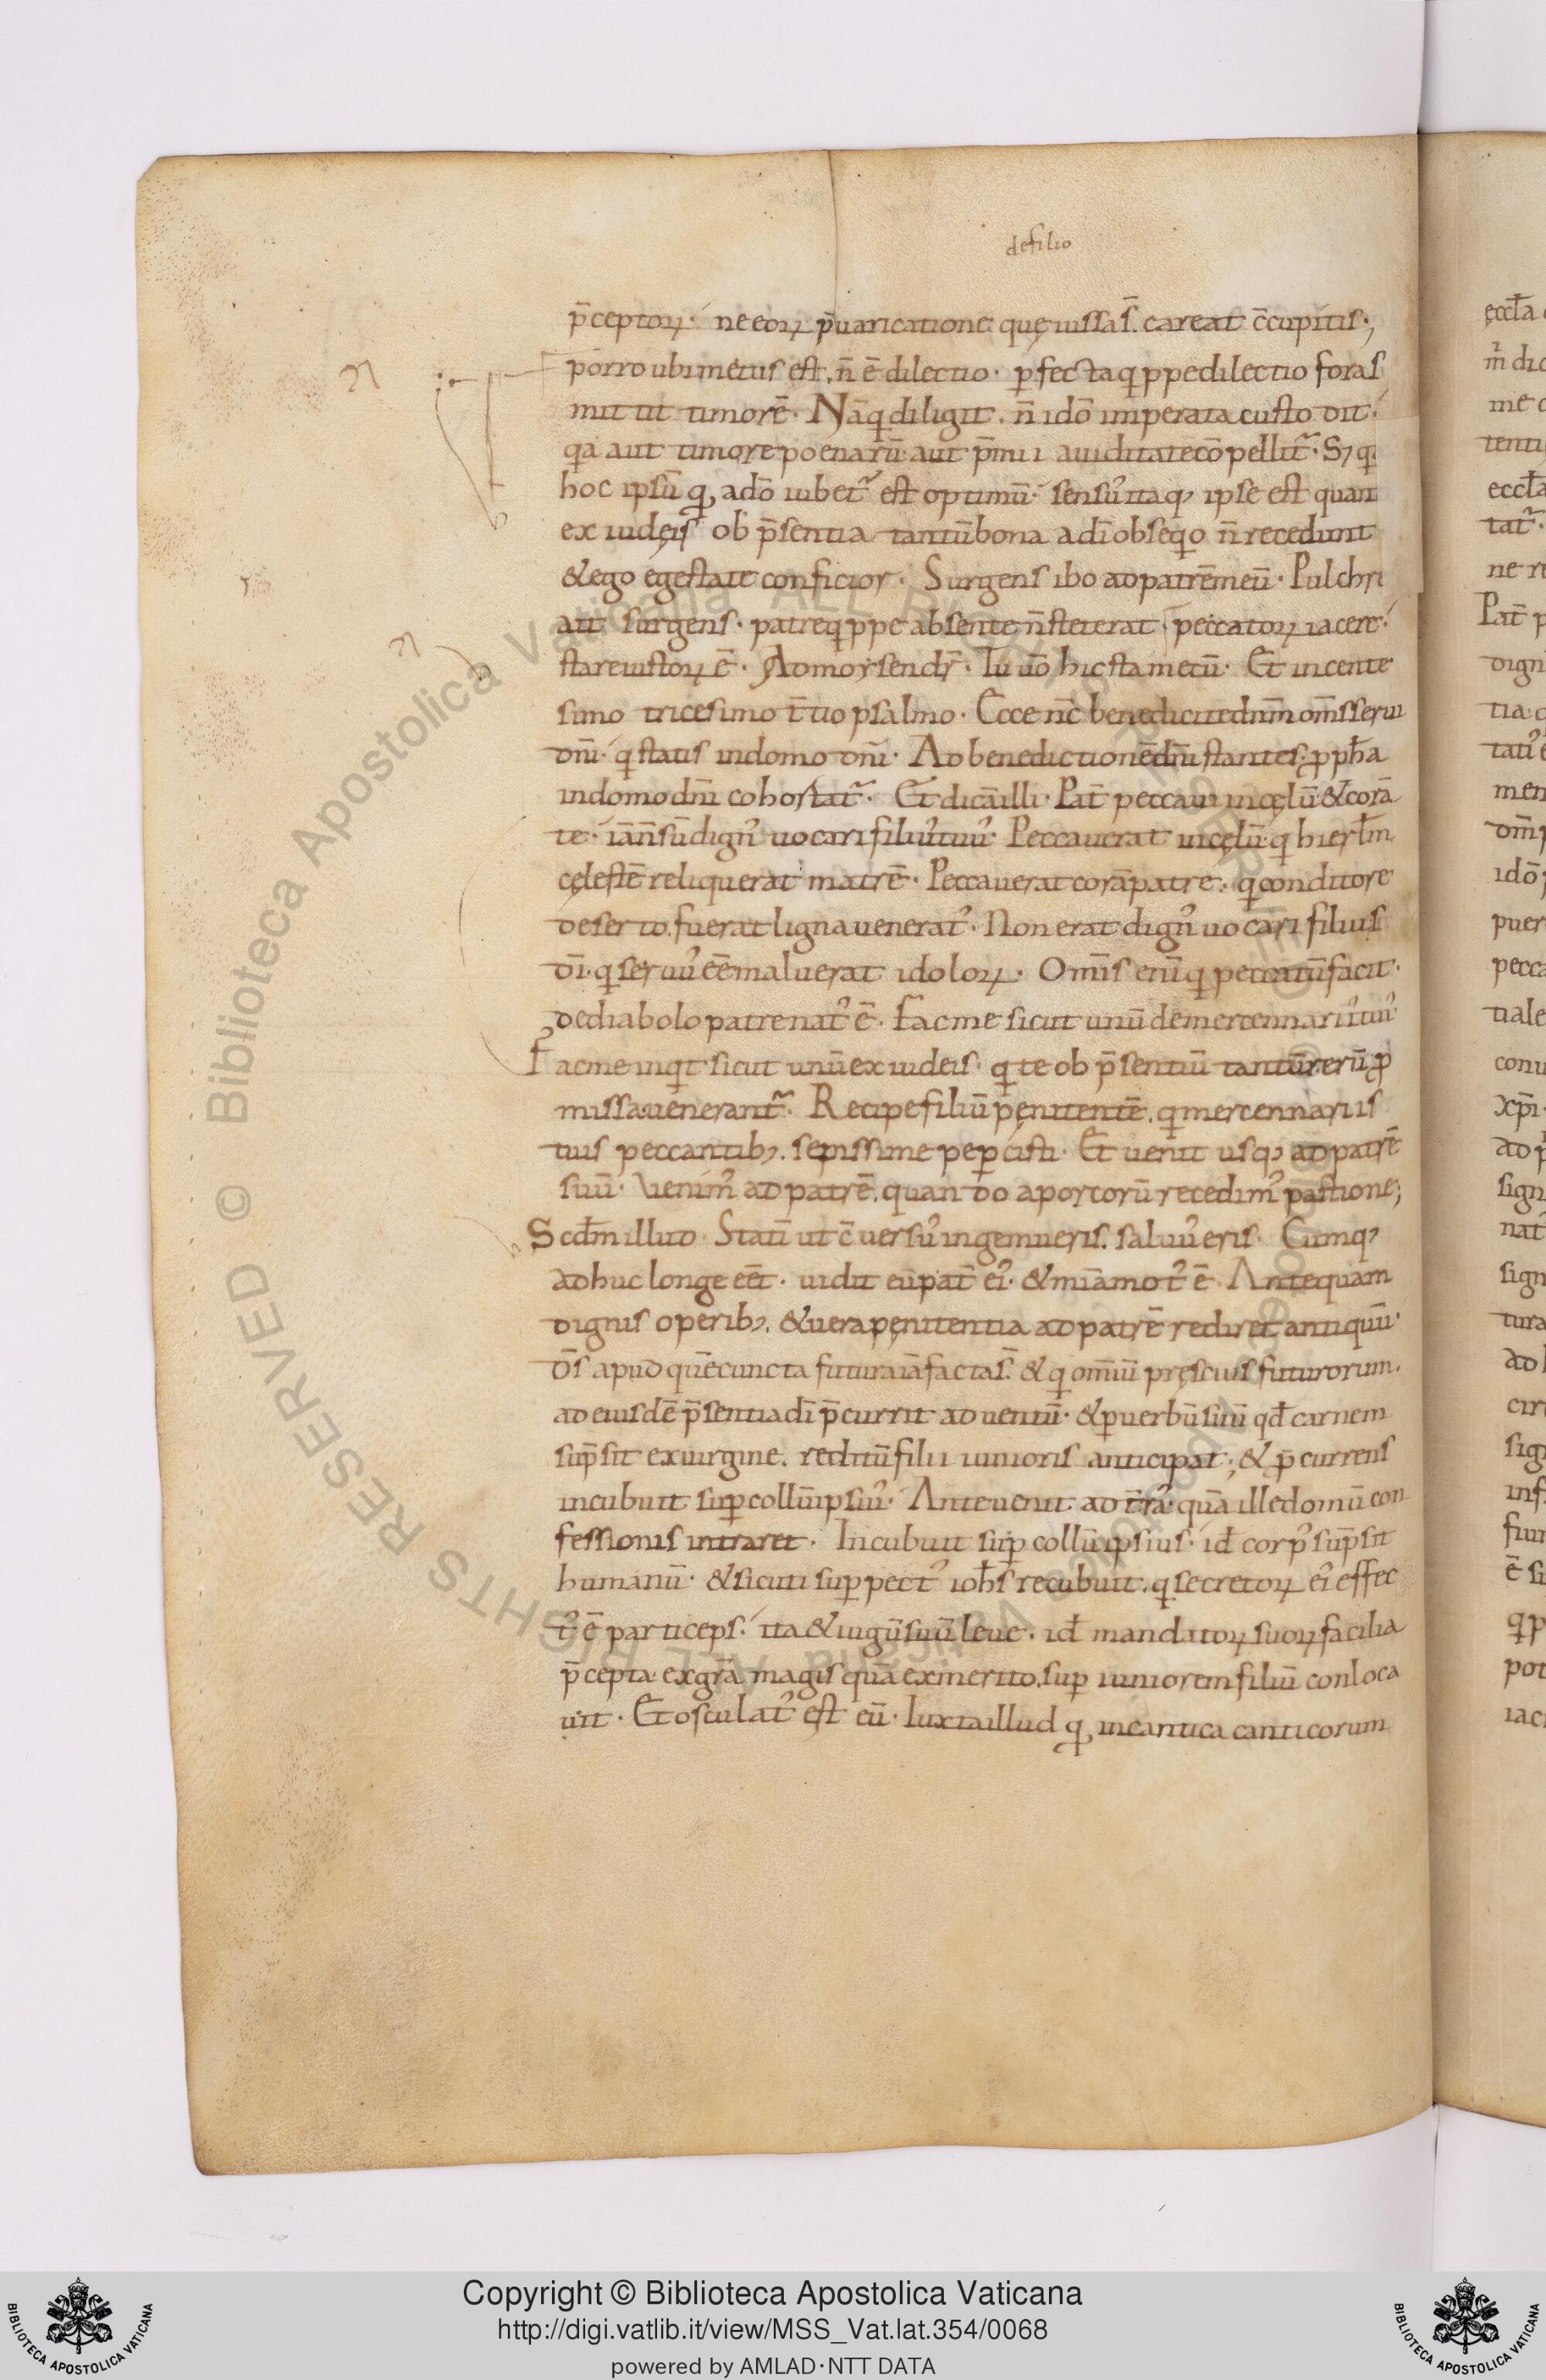 defilio
p̄ceptoꝝ· ne eoꝝ p̄uaricatione quę iussa s̄. careat c̄cupitis·,
porro ubi metus est. n̄ ē dilectio· ꝑfecta qͥppe dilectio foras
mittit timorē· Nā qͥ diligit. n̄ idō imperata custodit·
qͥa aut timore poenarū aut p̄mii auiditate cōpellit᷑· Sꝫ qͥ
hoc ipsū qꝫ a dō iubet᷑ est optimū· sensus itaqꝫ ipse est quan
ex iudęis ob p̄sentia tantū bona a dī obseqͥo n̄ recedunt
& ego egestate conficior· Surgens ibo ad patrē meū· Pulchre
ait surgens· patre qͥppe absente n̄ steterat· peccatoꝝ iacere·
stare iustoꝝ ē· Ad moysen dr̄· Tu uō hic sta mecū· Et in cente
simo tricesimo t̄tio psalmo· Ecce nc̄ benedicite dnm̄ om̄s serui
dnī· qͥ statis in domo dnī· Ad benedictionē dnī stantes· ꝓpha
in domo dnī cohortat᷑· Et dicā illi· Pat̄ peccaui in cęlū & corā
te· iā n̄ sū dign᷒ uocari fili᷒ tuu᷒· Peccauerat in cęlū· qͥ hierl̄m
cęlestē reliquerat matrē· Peccauerat corā patre· qͥ conditore
deserto. fuerat ligna uenerat᷒· Non erat dign᷒ uocari filius
dī· qͥ seruu᷒ eē maluerat idoloꝝ· Omīs enī qͥ peccatū facit·
de diabolo patre nat᷒ ē· Fac me sicut unū de mercennariis tuis
Fac me inqͥt sicut unū ex iudeis· qͥ te ob p̄sentiū tantū rerū ꝓ
missa uenerant᷑· Recipe filiū pęnitentē. qͥ mercennariis
tuis peccantibꝫ. sepissime peꝑcisti· Et uenit usqꝫ ad patrē
suū· Venim᷒ ad patrē. quando a porcorū recedim᷒ pastione;
Scdm̄ illud· Statī ut c̄uersu᷒ ingemueris. saluu᷒ eris· Cumqꝫ
adhuc longe eēt· uidit eū pat̄ ei᷒· & mīa mot᷒ ē· Antequam
dignis operibꝫ. & uera pęnitentia ad patrē rediret antiquū·
dī s apud quē cuncta futura iā facta s̄· & qͥ omīū pręscius futurorum.
ad eiusdē p̄sentia dī p̄currit aduentū· & ꝑ uerbū suū qd̄ carnem
sūpsit ex uirgine. reditū filii iunioris anticipat; & p̄currens
incubuit suꝑ collū ipsiu᷒· Ante uenit ad t̄rā· quā ille domū con
fessionis intraret· Incubuit suꝑ collū ipsius· id̄ corp᷒ sūpsit
humanū· & sicuti suꝑ pect᷒ ioh̄s recubuit. qͥ secretoꝝ ei᷒ effec
t᷒ ē particeps· ita & iugū suū leue· id̄ mandatoꝝ suoꝝ facilia
p̄cepta ex gr̄a magis quā ex merito. suꝑ iuniorem filiū conloca
uit· Et osculat᷒ est eū· Iuxta illud qꝫ in cantica canticorum
Copyright © Biblioteca Apostolica Vaticana
http://digi.vatlib.it/view/MSS_Vat.lat.354/0068
powered by AMLAD·NTT DATA